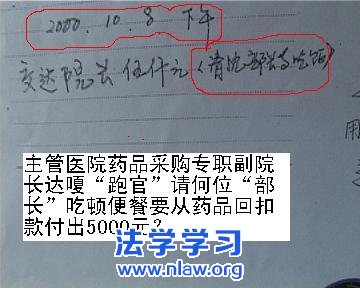 2000.10.8 下午
交达院长伍仟元（请院部长吃饭）
主管医院药品采购专职副院
长达嗄“跑官”请何位“部
长”吃顿便餐要从药品回扣
款付出5000元？
法学学习
www.nlaw.org
用